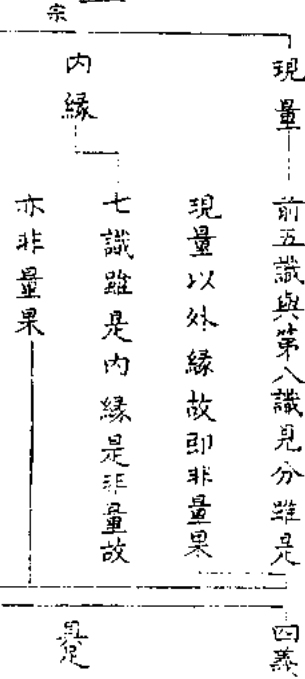 宗
現量
前五識與第八識見分雖是
現量以外緣故即非量果
內緣
七識雖是內緣是非量故
亦非量果
四義